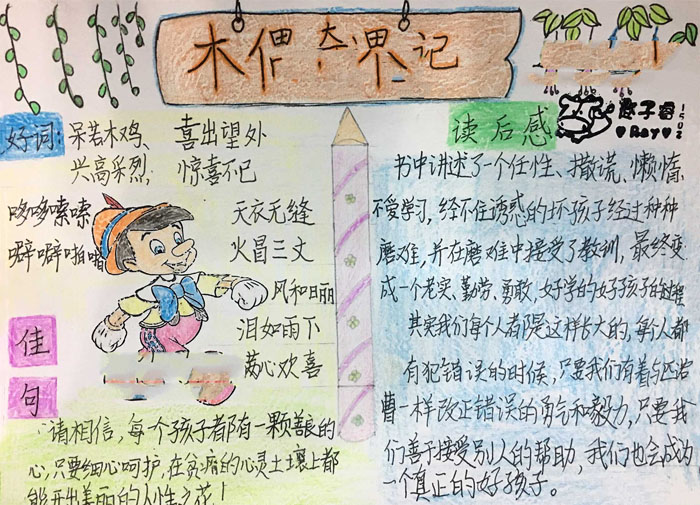 木偶奇遇记
好词：呆若木鸡、喜出望外
兴高采烈；惊喜不已
哆哆嗦嗦 天衣无缝
噼噼啪啪 火冒三丈
风和日丽
泪如雨下
满心欢喜
佳句
请相信，每个孩子都有一颗善良的
心，只要细心呵护，在贫瘠的心灵土壤上都
能开出美丽的人性之花！
读后感
子睿
1502
Ray
书中讲述了一个任性、撒谎、懒惰
不爱学习，经不住诱惑的坏孩子经过种种
磨难，并在磨难中接受了教训，最终变
成一个老实、勤劳、勇敢、好学的好孩子的过程
其实我们每个人都是这样长大的，每个人都
有犯错误的时候，只要我们有着与匹诺
曹一样改正错误的勇气和毅力，只要我
们善于接受别人的帮助，我们也会成为
一个真正的好孩子。